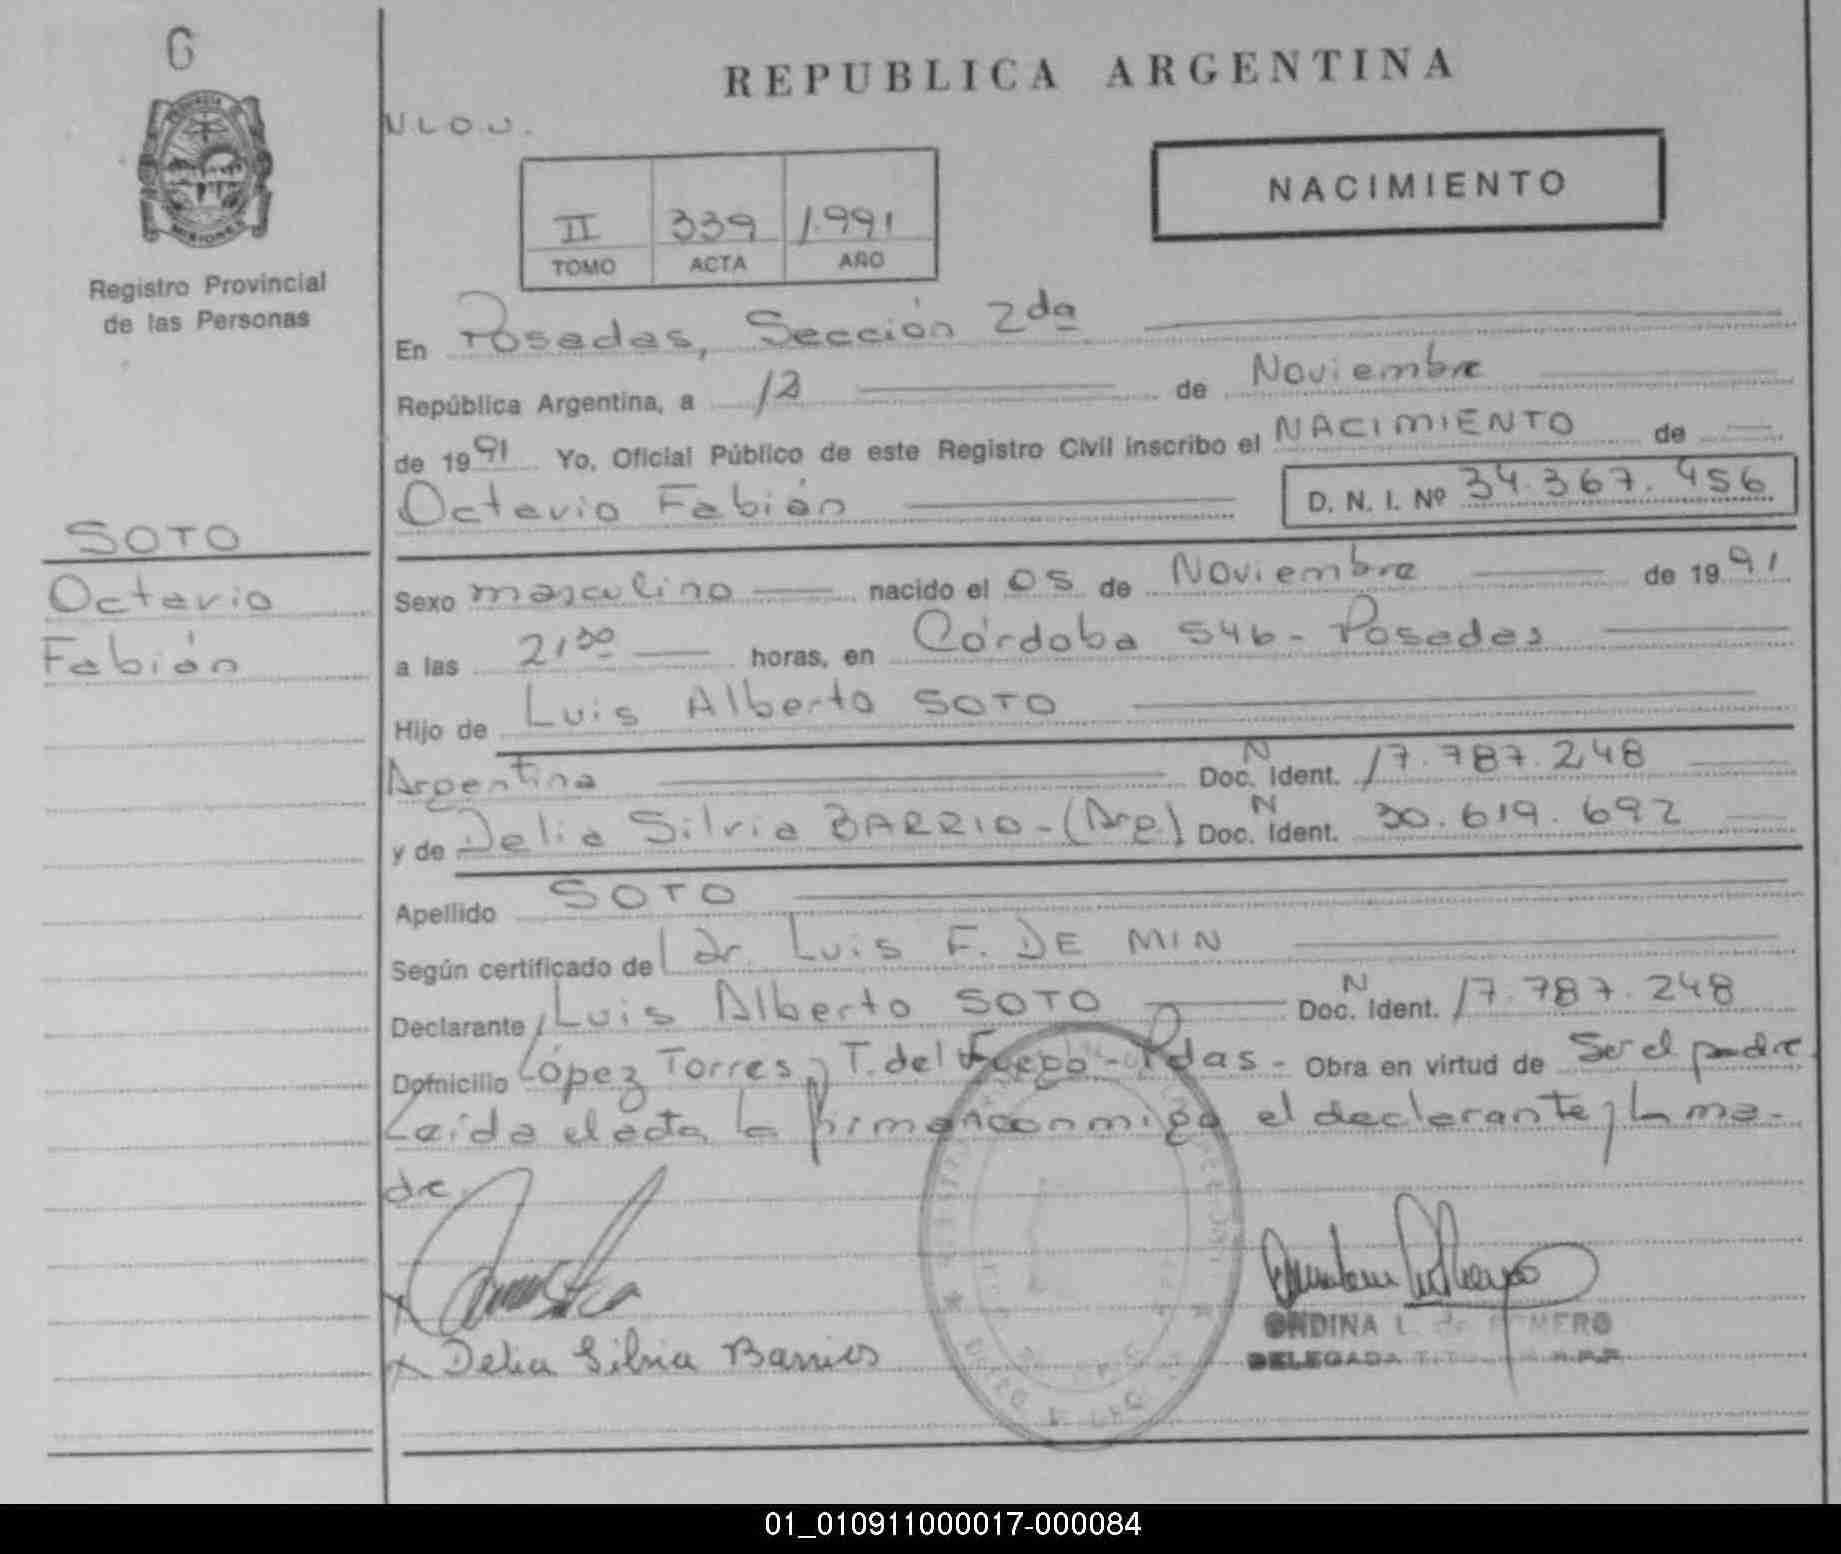 G
REPUBLICA ARGENTINA
N L O U.
NACIMIENTO
II 339 1.991
TOMO ACTA AÑO
Registro Provincial
de las Personas
En Posadas, Sección 2da
República Argentina, a 12 de Noviembre
de 1991 Yo, Oficial Público de este Registro Civil inscribo el NACIMIENTO de
Octavio Fabián D. N. I. Nº 34.367.456
SOTO
Octavio
Fabián
Sexo masculino nacido el 05 de Noviembre de 1991
a las 21 30 horas, en Córdoba 546 - Posadas
Hijo de Luis Alberto SOTO
Argentina Doc. N Ident. 17.787.248
y de Delia Silvia BARRIO - (Arg) Doc. N Ident. 30.619.692
Apellido SOTO
Según certificado del Dr. Luis F. DE MIN
Declarante Luis Alberto SOTO Doc. N Ident. 17.787.248
Domicilio López Torres y T. del Fuego - Pdas - Obra en virtud de Ser el padre
Leída el acta la firman conmigo el declarante y la ma-
dre
x
x Delia Silvia Barrios
ONDINA L. de ROMERO
DELEGADA TITULAR R.P.P.
01_010911000017-000084